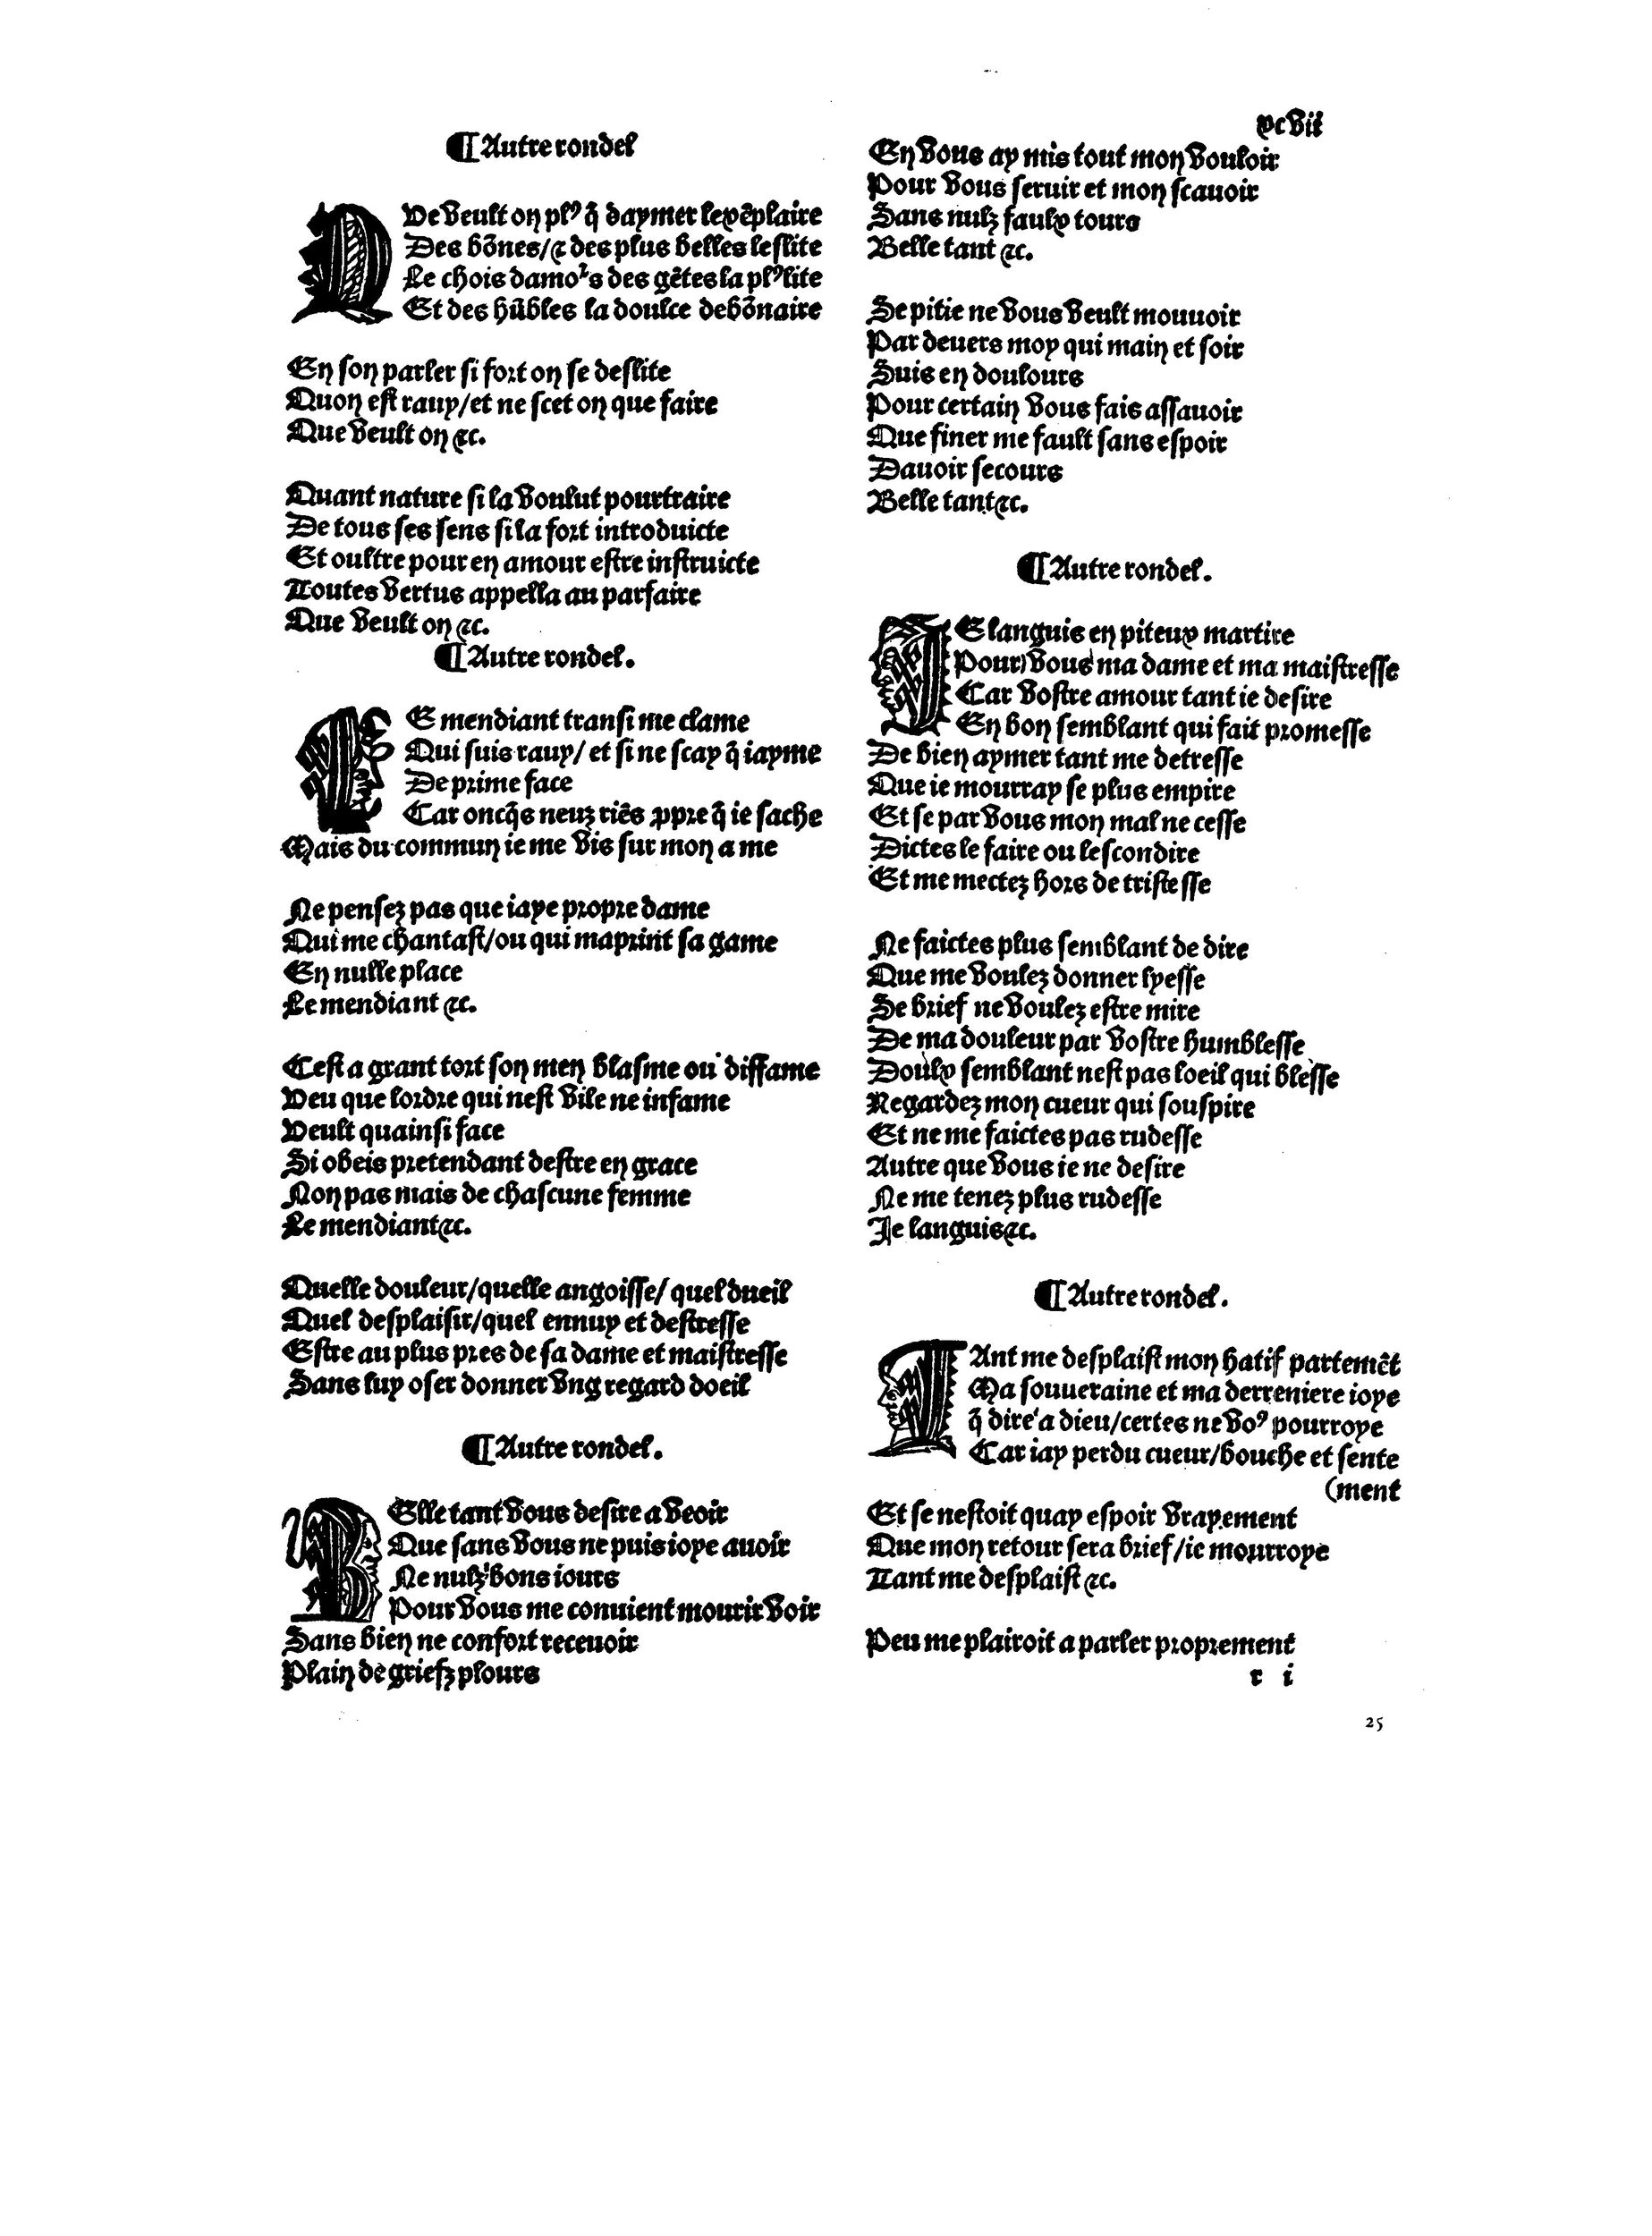 ¶ Autre rondel
QVe veult on plꝰ q̃ daymer lexẽplaire
Des bõnes/⁊ des plus belles leslite
Le chois damoꝛs des gẽtes la plꝰlite
Et des hũbles la doulce debõnaire
En son parler si fort on se deslite
Quon est rauy/et ne scet on que faire
Que veult on ⁊c.
Quant nature si la voulut pourtraire
De tous ses sens si la fort introduicte
Et oultre pour en amour estre instruicte
Toutes vertus appella au parfaire
Que veult on ⁊c.
¶ Autre rondel.
LE mendiant transi me clame
Qui suis rauy/ et si ne scay q̃ iayme
De prime face
Car oncq̃s neuz riẽs ꝓpre q̃ ie sache
Mais du commun ie me vis sur mon a me
Ne pensez pas que iaye propre dame
Qui me chantast/ou qui maprint sa game
En nulle place
Le mendiant ⁊c.
Cest a grant tort son men blasme ou diffame
Veu que lordre qui nest vile ne infame
Veult quainsi face
Si obeis pretendant destre en grace
Non pas mais de chascune femme
Le mendiant⁊c.
Quelle douleur/quelle angoisse/ quel dueil
Quel desplaisir/quel ennuy et destresse
Estre au plus pres de sa dame et maistresse
Sans luy oser donner vng regard doeil
¶ Autre rondel.
BElle tant vous desire a veoir
Que sans vous ne puis ioye auoir
Ne nulz bons iours
Pour vous me conuient mourir voir
Sans bien ne confort receuoir
Plain de griefz plours
xcvii
En vous ay mis tout mon vouloir
Pour vous seruir et mon scauoir
Sans nulz faulx tours
Belle tant ⁊c.
Se pitie ne vous veult mouuoir
Par deuers moy qui main et soir
Suis en doulours
Pour certain vous fais assauoir
Que finer me fault sans espoir
Dauoir secours
Belle tant⁊c.
¶ Autre rondel.
IE languis en piteux martire
Pour vous ma dame et ma maistresse
Car vostre amour tant ie desire
En bon semblant qui fait promesse
De bien aymer tant me detresse
Que ie mourray se plus empire
Et se par vous mon mal ne cesse
Dictes le faire ou lescondire
Et me mectez hors de tristesse
Ne faictes plus semblant de dire
Que me voulez donner lyesse
Se brief ne voulez estre mire
De ma douleur par vostre humblesse
Doulx semblant nest pas loeil qui blesse
Regardez mon cueur qui souspire
Et ne me faictes pas rudesse
Autre que vous ie ne desire
Ne me tenez plus rudesse
Je languis⁊c.
¶ Autre rondel.
TAnt me desplaist mon hatif partemẽt
Ma souueraine et ma derreniere ioye
q̃ dire a dieu/certes ne voꝰ pourroye
Car iay perdu cueur/bouche et sente
(ment
Et se nestoit quay espoir vrayement
Que mon retour sera brief/ie mourroye
Tant me desplaist ⁊c.
Peu me plairoit a parler proprement
r i
25